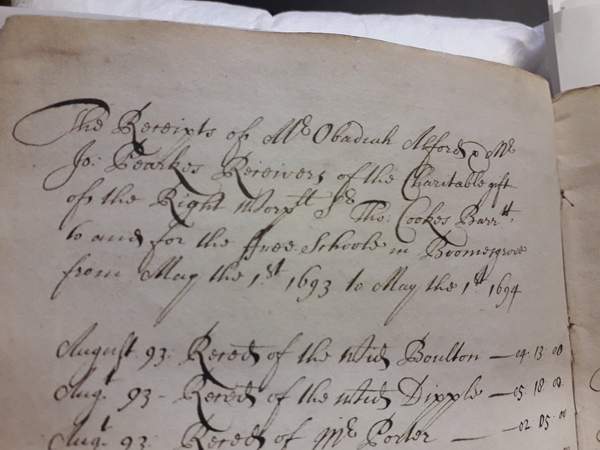 The Receipts of Mr Obadiah Alford & Mr
Jo: Pearkes Receivers of the Charitable gift
of the Right Worpll Sr Tho: Cookes Barrtt.
to and for the ffree Schoole in Bromesgrove
from May the 1.st 1693 to May the 1st 1694
August 93: Reced of the Wid Boulton — 04. 13 00
Augt 93 - Reced of the Wid Dipple — 05. 18 00
Augt 93: Reced of Mr Porter — 02 05. 00